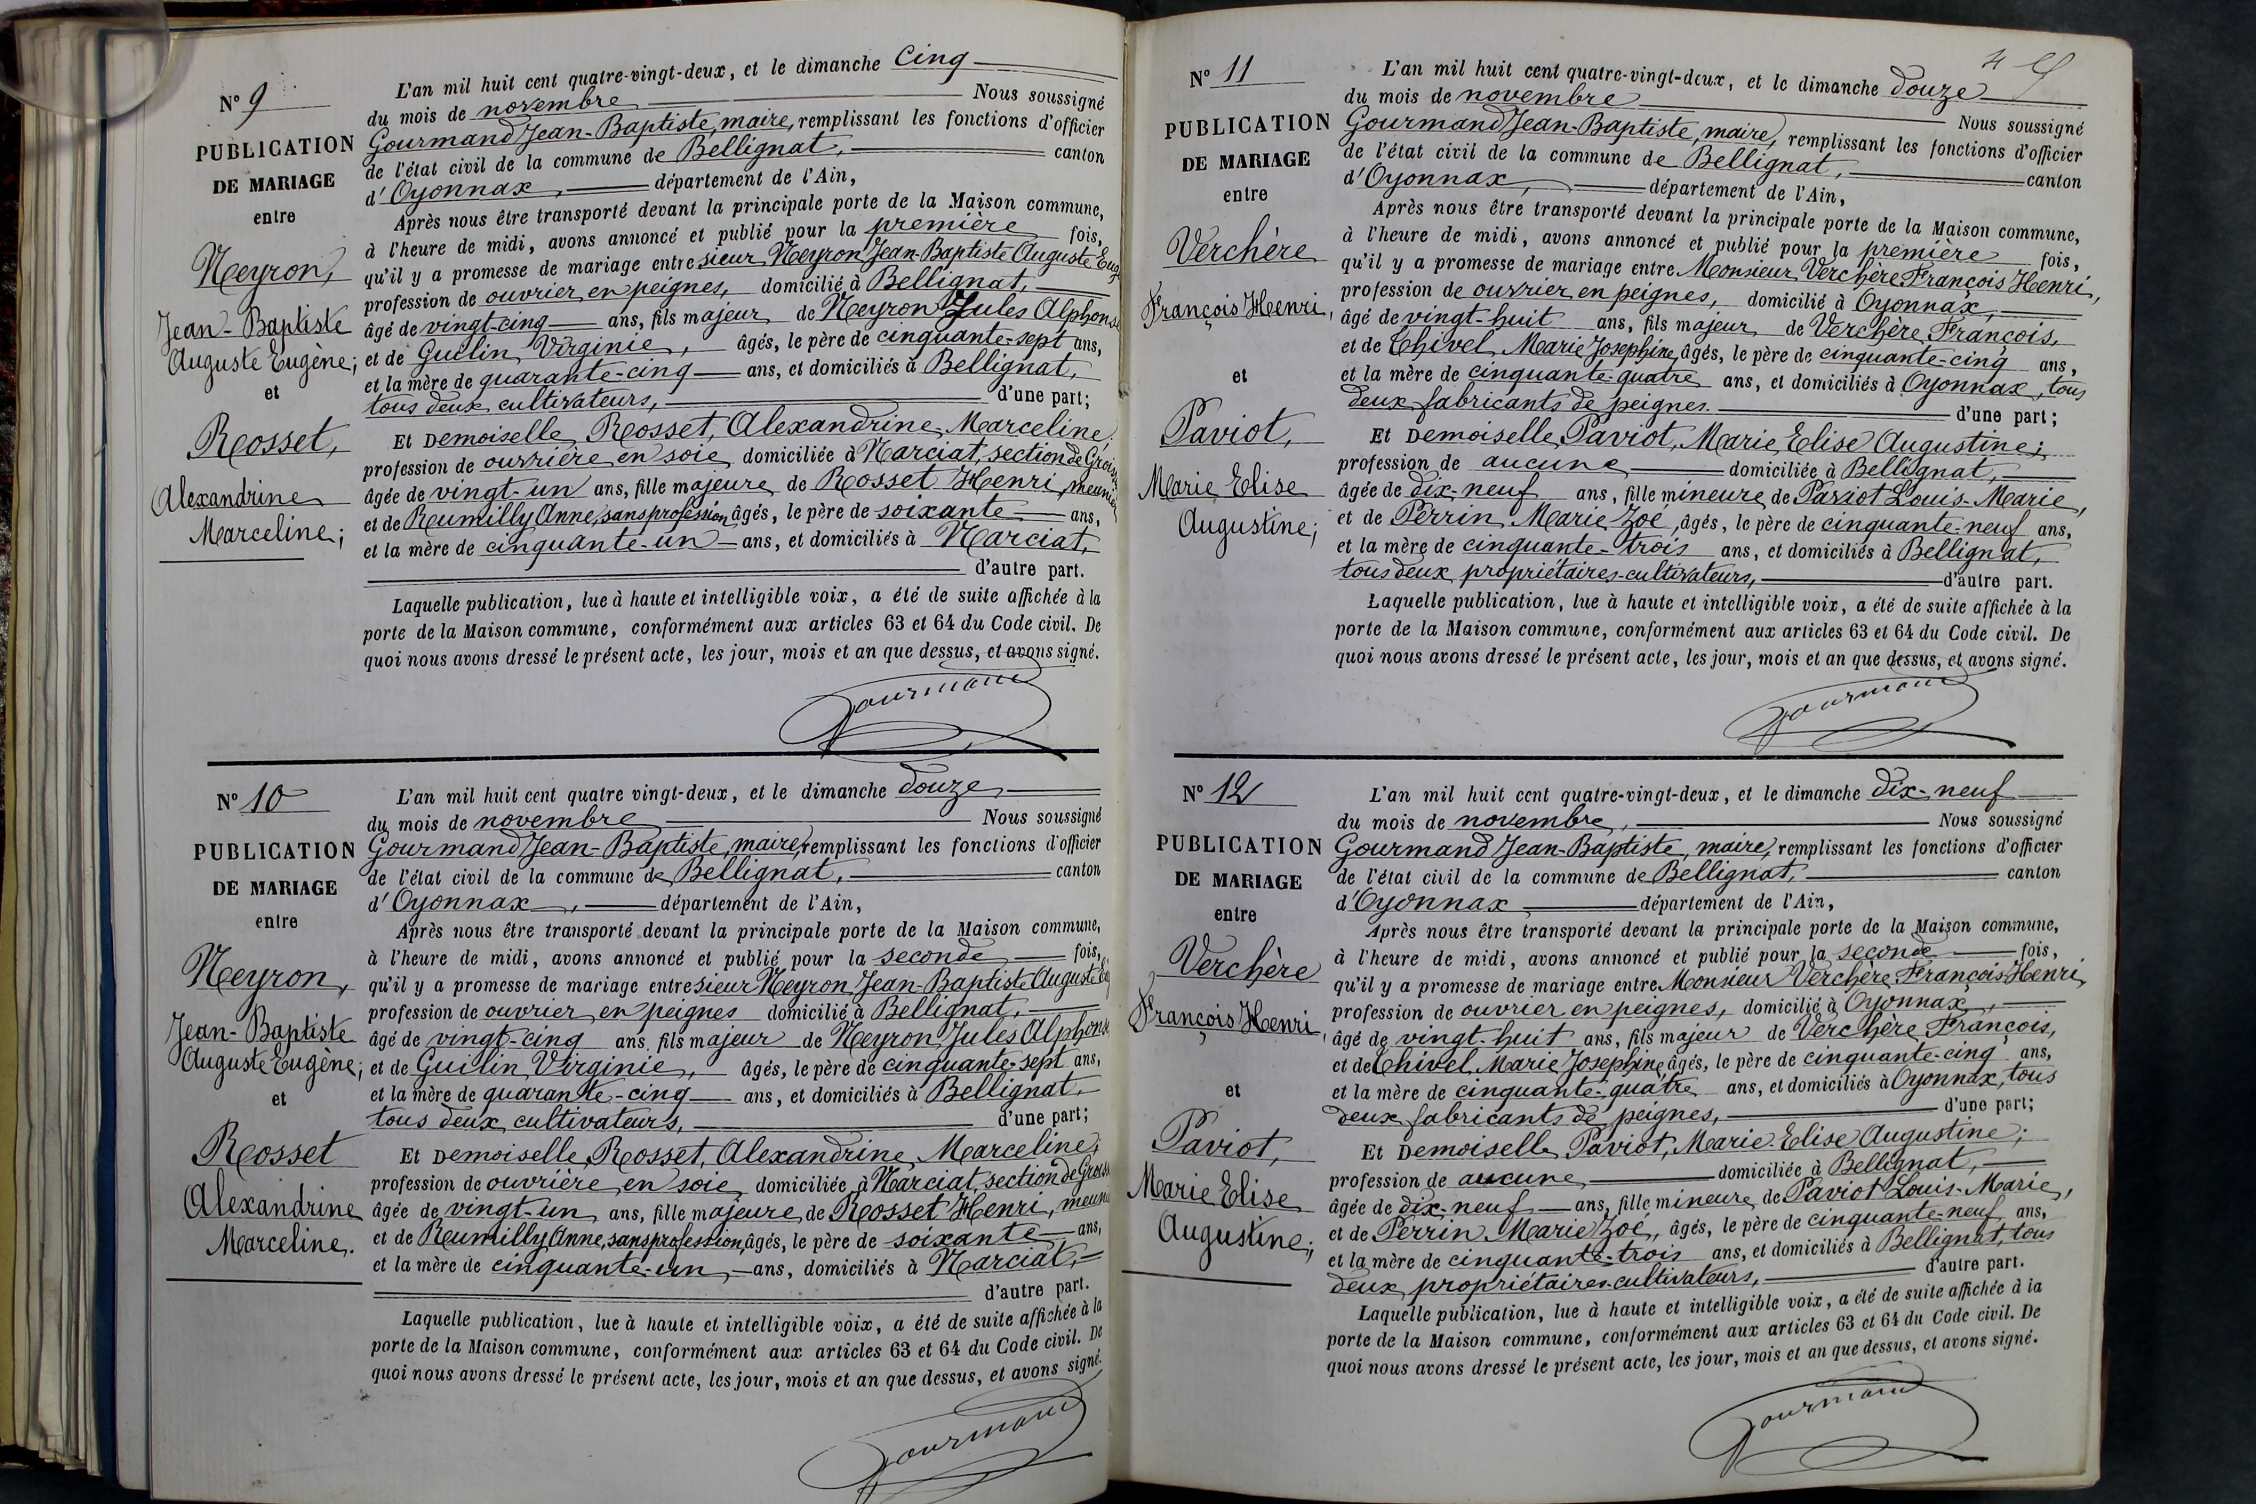 N° 9
PUBLICATION
DE MARIAGE
entre
Neyron,
Jean-Baptiste
Auguste Eugène;
et
Rosset,
Alexandrine
Marceline;
L'an mil huit cent quatre-vingt-deux, et le dimanche cinq
du mois de novembre Nous soussigné
Gourmand Jean-Baptiste, maire, remplissant les fonctions d'officier
de l'état civil de la commune de Bellignat, canton
d'Oyonnax, département de l'Ain,
Après nous être transporté devant la principale porte de la Maison commune,
à l'heure de midi, avons annoncé et publié pour la première fois,
qu'il y a promesse de mariage entre sieur Neyron Jean-Baptiste Auguste Eug
profession de ouvrier en peignes, domicilié à Bellignat,
âgé de vingt-cinq ans, fils majeur de Neyron Jules Alphonse
et de Guilin Virginie, âgés, le père de cinquante-sept ans,
et la mère de quarante-cinq ans, et domiciliés à Bellignat,
tous deux cultivateurs, d'une part;
Et Demoiselle Rosset, Alexandrine Marceline;
profession de ouvrière en soie domiciliée à Marciat, section de
âgée de vingt-un ans, fille majeure de Rosset Henri, meunier
et de Reumilly Anne, sans profession âgés, le père de soixante ans,
et la mère de cinquante-un ans, et domiciliés à Marciat,
d'autre part.
Laquelle publication, lue à haute et intelligible voix, a été de suite affichée à la
porte de la Maison commune, conformément aux articles 63 et 64 du Code civil. De
quoi nous avons dressé le présent acte, les jour, mois et an que dessus, et avons signé.
Gourmand
N° 10
PUBLICATION
DE MARIAGE
entre
Neyron,
Jean-Baptiste
Auguste Eugène;
et
Rosset
Alexandrine
Marceline.
L'an mil huit cent quatre vingt-deux, et le dimanche douze
du mois de novembre Nous soussigné
Gourmand Jean-Baptiste, maire, remplissant les fonctions d'officier
de l'état civil de la commune de Bellignat, canton
d'Oyonnax, département de l'Ain,
Après nous être transporté devant la principale porte de la Maison commune,
à l'heure de midi, avons annoncé et publié pour la seconde fois,
qu'il y a promesse de mariage entre sieur Neyron Jean-Baptiste Auguste Eug
profession de ouvrier en peignes domicilié à Bellignat,
âgé de vingt-cinq ans, fils majeur de Neyron Jules Alphonse
et de Guilin Virginie, âgés, le père de cinquante-sept ans,
et la mère de quarante-cinq ans, et domiciliés à Bellignat,
tous deux cultivateurs, d'une part;
Et Demoiselle Rosset, Alexandrine Marceline;
profession de ouvrière en soie domiciliée à Marciat, section de
âgée de vingt-un ans, fille majeure de Rosset Henri, meunier
et de Reumilly Anne, sans profession âgés, le père de soixante ans,
et la mère de cinquante-un ans, domiciliés à Marciat,
d'autre part.
Laquelle publication, lue à haute et intelligible voix, a été de suite affichée à la
porte de la Maison commune, conformément aux articles 63 et 64 du Code civil. De
quoi nous avons dressé le présent acte, les jour, mois et an que dessus, et avons signé.
Gourmand
N° 11
PUBLICATION
DE MARIAGE
entre
Verchère
François Henri,
et
Paviot,
Marie Elise
Augustine;
L'an mil huit cent quatre-vingt-deux, et le dimanche douze
du mois de novembre Nous soussigné
Gourmand Jean-Baptiste, maire, remplissant les fonctions d'officier
de l'état civil de la commune de Bellignat, canton
d'Oyonnax, département de l'Ain,
Après nous être transporté devant la principale porte de la Maison commune,
à l'heure de midi, avons annoncé et publié pour la première fois,
qu'il y a promesse de mariage entre Monsieur Verchère François Henri,
profession de ouvrier en peignes, domicilié à Oyonnax,
âgé de vingt-huit ans, fils majeur de Verchère François,
et de Chivel Marie Josephine, âgés, le père de cinquante-cinq ans,
et la mère de cinquante-quatre ans, et domiciliés à Oyonnax, tous
deux fabricants de peignes. d'une part;
Et Demoiselle Paviot, Marie Elise Augustine;
profession de aucune domiciliée à Bellignat,
âgée de dix-neuf ans, fille mineure de Paviot Louis-Marie,
et de Perrin Marie Zoé, âgés, le père de cinquante-neuf ans,
et la mère de cinquante-trois ans, et domiciliés à Bellignat,
tous deux propriétaires-cultivateurs, d'autre part.
Laquelle publication, lue à haute et intelligible voix, a été de suite affichée à la
porte de la Maison commune, conformément aux articles 63 et 64 du Code civil. De
quoi nous avons dressé le présent acte, les jour, mois et an que dessus, et avons signé.
Gourmand
N° 12
PUBLICATION
DE MARIAGE
entre
Verchère
François Henri,
et
Paviot,
Marie Elise
Augustine;
L'an mil huit cent quatre-vingt-deux, et le dimanche dix-neuf
du mois de novembre, Nous soussigné
Gourmand Jean-Baptiste, maire, remplissant les fonctions d'officier
de l'état civil de la commune de Bellignat, canton
d'Oyonnax département de l'Ain,
Après nous être transporté devant la principale porte de la Maison commune,
à l'heure de midi, avons annoncé et publié pour la seconde fois,
qu'il y a promesse de mariage entre Monsieur Verchère François Henri
profession de ouvrier en peignes, domicilié à Oyonnax,
âgé de vingt-huit ans, fils majeur de Verchère François,
et de Chivel Marie Josephine âgés, le père de cinquante-cinq ans,
et la mère de cinquante-quatre ans, et domiciliés à Oyonnax, tous
deux fabricants de peignes, d'une part;
Et Demoiselle Paviot, Marie Elise Augustine;
profession de aucune domiciliée à Bellignat,
âgée de dix-neuf ans, fille mineure de Paviot Louis-Marie,
et de Perrin Marie Zoé, âgés, le père de cinquante-neuf ans,
et la mère de cinquante-trois ans, et domiciliés à Bellignat, tous
deux propriétaires-cultivateurs, d'autre part.
Laquelle publication, lue à haute et intelligible voix, a été de suite affichée à la
porte de la Maison commune, conformément aux articles 63 et 64 du Code civil. De
quoi nous avons dressé le présent acte, les jour, mois et an que dessus, et avons signé.
Gourmand